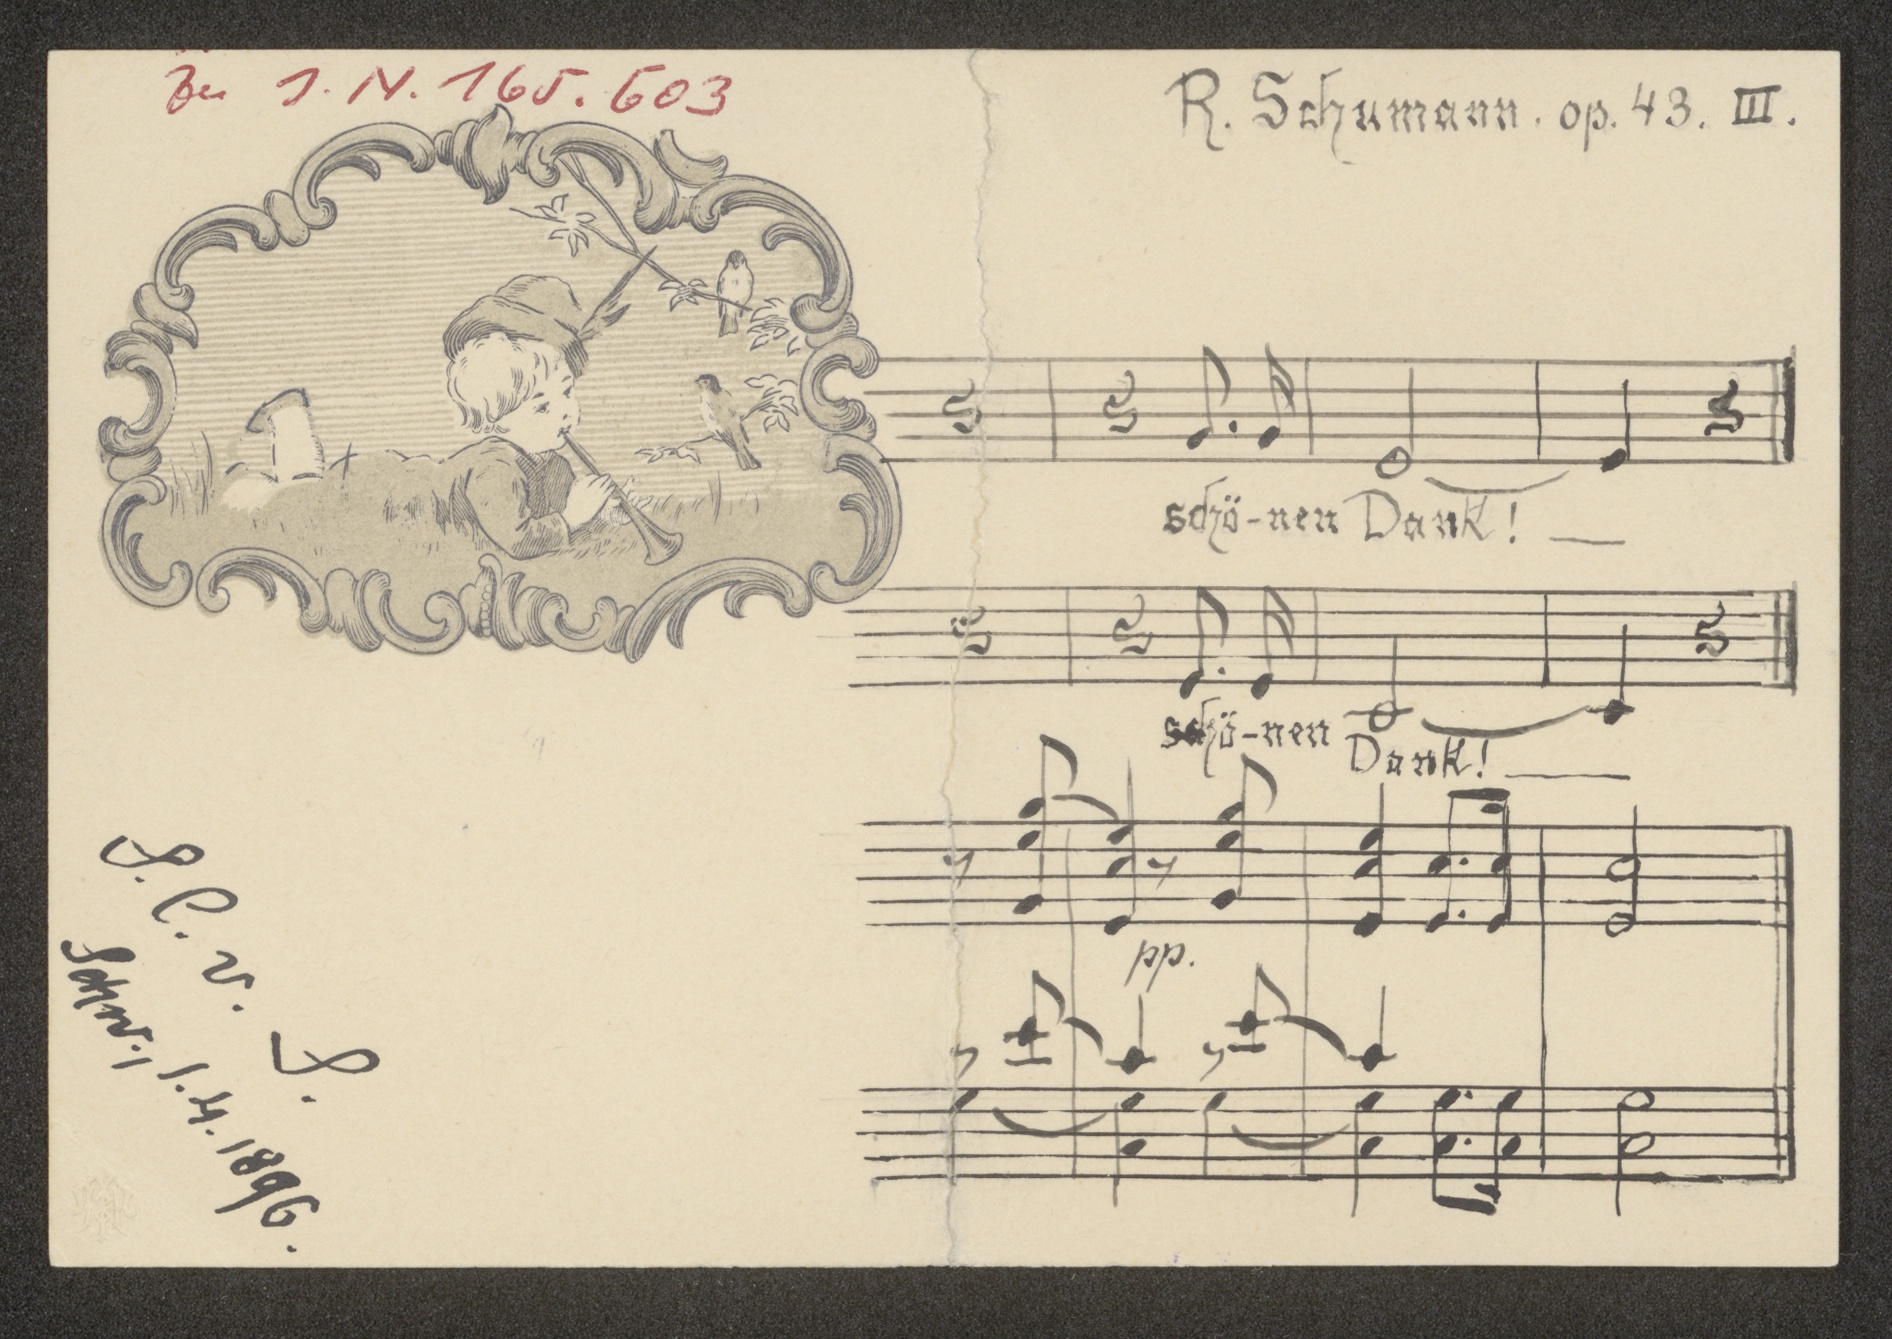 Zu I. N. 165.603
R. Schumann. op. 43. III.
schö-nen Dank! __
schö-nen Dank! __
pp.
1.4.1896.